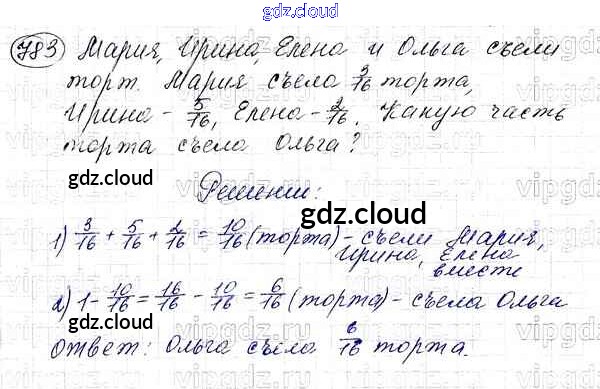 gdz.cloud
783 Мария, Ирина, Елена и Ольга съели
торт. Мария съела 3/16 торта,
Ирина - 5/16, Елена - 2/16. Какую часть
торта съела Ольга?
gdz.cloud
Решение:
gdz.cloud
1) 3/16 + 5/16 + 2/16 = 10/16 (торта) - съели Мария,
Ирина, Елена
вместе
2) 1 - 10/16 = 16/16 - 10/16 = 6/16 (торта) - съела Ольга
gdz.cloud
gdz.cloud
Ответ: Ольга съела 6/16 торта.